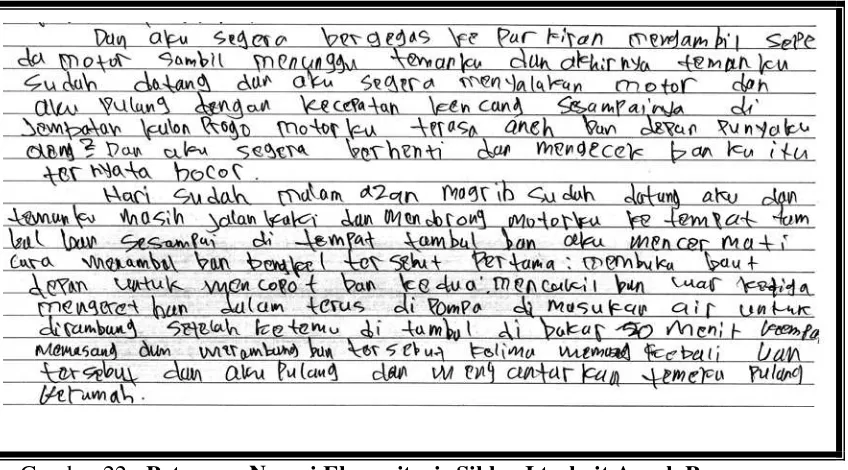 Dan aku segera bergegas ke Parkiran mengambil sepe
da motor sambil menunggu temanku dan akhirnya teman ku
sudah datang dan aku segera menyalakan motor dan
aku pulang dengan kecepatan kencang Sesampainya di
Jembatan kulon Progo motor ku terasa aneh ban depan punyaku
oleng? Dan aku segera berhenti dan mengecek ban ku itu
ternyata bocor.
Hari sudah malam azan magrib sudah datang aku dan
temanku masih jalan kaki dan mendorong motorku ke tempat tam
bal ban sesampai di tempat tambal ban aku mencermati
cara menambal ban bengkel tersebut Pertama: membuka baut
depan untuk mencopot ban kedua: mencukil ban luar ketiga
mengeret ban dalam terus di Pompa di masukan air untuk
disambung setelah ketemu di tambal di bakar 50 menit
Memasang dan ban tersebut kelima kebali ban
tersebut dan aku Pulang dan mengantarkan temeku pulang
kerumah.